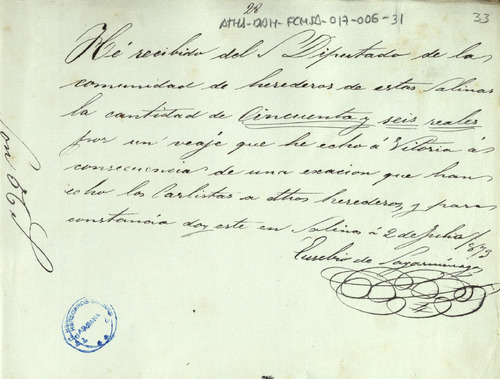 28
ATHA-DAH-FCMSA-017-006-31
33
Hé recibido del S Diputado de la
comunidad de herederos de estas Salinas
la cantidad de Cincuenta y seis reales
por un veaje que he echo á Vitoria á
consecuencia de una exacion que han
echo los Carlistas a dthos herederos, y para
constancia doy este en Salinas á 2 de Julio 1873
Eusebio de
Son 56 r